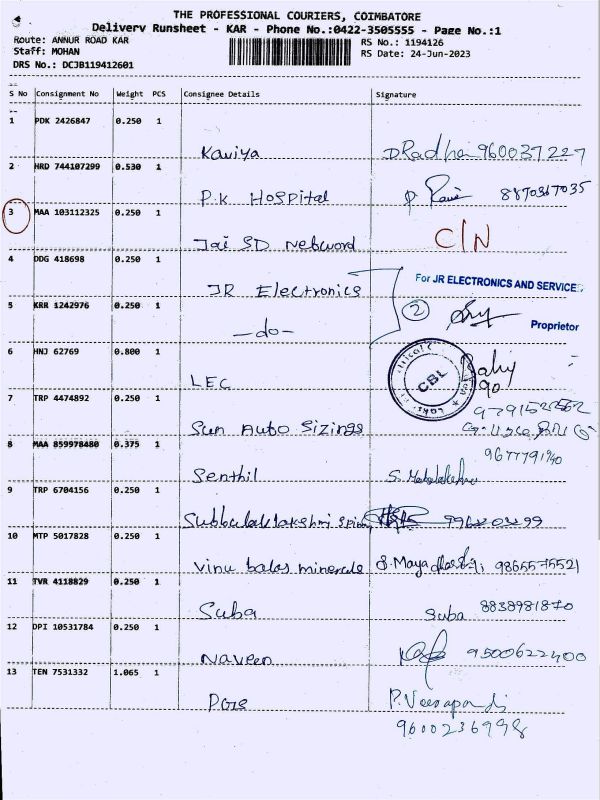 THE PROFESSIONAL COURIERS, COIMBATORE
Delivery Runsheet - KAR - Phone No.:0422-3505555 - Page No.:1
Route: ANNUR ROAD KAR
RS No.: 1194126
Staff: MOHAN
RS Date: 24-Jun-2023
DRS No.: DCJB119412601
S No Consignment No Weight PCS Consignee Details Signature
1 PDK 2426847 0.250 1
Kaviya D Radha 960037227
2 HRD 744107299 0.530 1
P.K Hospital 8870367035
3 MAA 103112325 0.250 1
Jai SD Netword C/N
4 DDG 418698 0.250 1
JR Electronics
For JR ELECTRONICS AND SERVICES
5 KRR 1242976 0.250 1
-do- 2
Proprietor
6 HNJ 62769 0.800 1
LEC CBL
7 TRP 4474892 0.250 1
Sun Auto Sizings
8 MAA 859978480 0.375 1
Senthil
9 TRP 6704156 0.250 1
10 MTP 5017828 0.250 1
Vinu balas minerals 9865575521
11 TVR 4118829 0.250 1
Suba Suba 8838981870
12 DPI 10531784 0.250 1
Naveen 9500622400
13 TEN 7531332 1.065 1
P. Veerapandi
9600236998